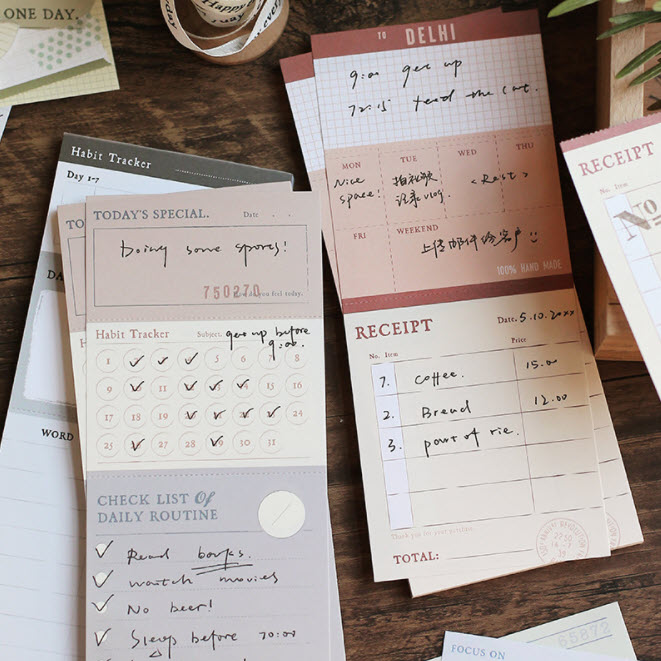 ONE DAY.
Happy
TO DELHI
9:00 get up
12:15 feed the cat.
MON
TUE
WED
THU
Nice
space!
<Rest>
FRI
WEEKEND
100% HAND MADE
RECEIPT
Date. 5.10.20xx
No. Item
Price
1. coffee.
15.00
2. Bread
12.00
3. part of rie.
Thank you for your purchase.
TOTAL:
Habit Tracker
Day 1-7
WORD
TODAY'S SPECIAL.
Date . .
Doing some spores!
750270
you feel today.
Habit Tracker
Subject. get up before
9:00
1 2 3 4 5 6 7 8
9 10 11 12 13 14 15 16
17 18 19 20 21 22 23 24
25 26 27 28 29 30 31
CHECK LIST Of
DAILY ROUTINE
Read books.
watch movies
No beer!
Sleep before 10:00
RECEIPT
No. Item
No
65872
FOCUS ON